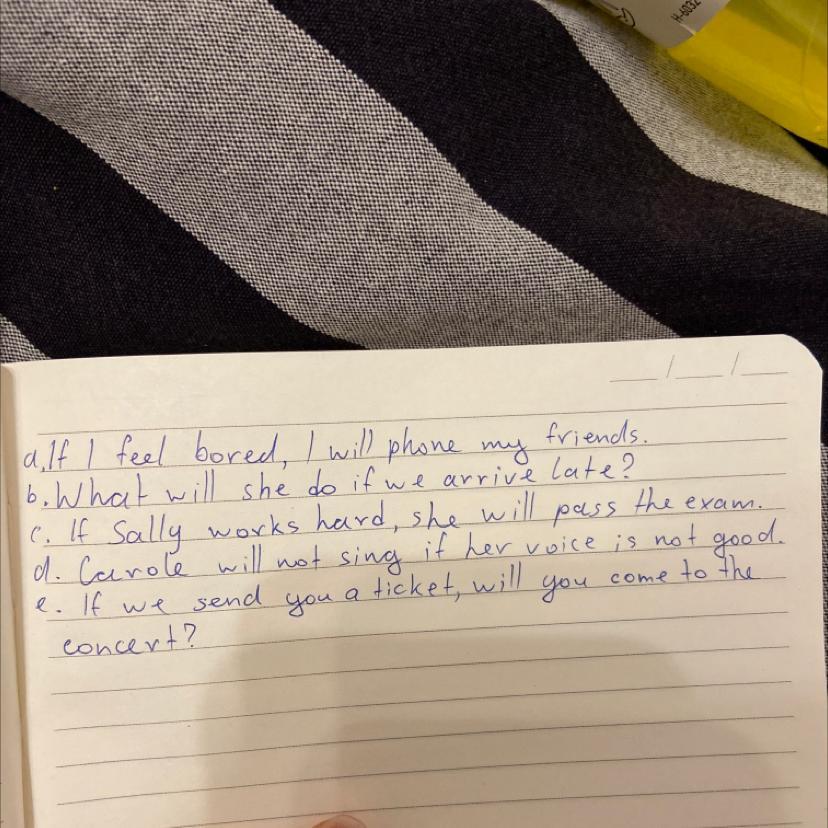 H-6032
a. If I feel bored, I will phone my friends.
b. What will she do if we arrive late?
c. If Sally works hard, she will pass the exam.
d. Carole will not sing if her voice is not good.
e. If we send you a ticket, will you come to the
concert?